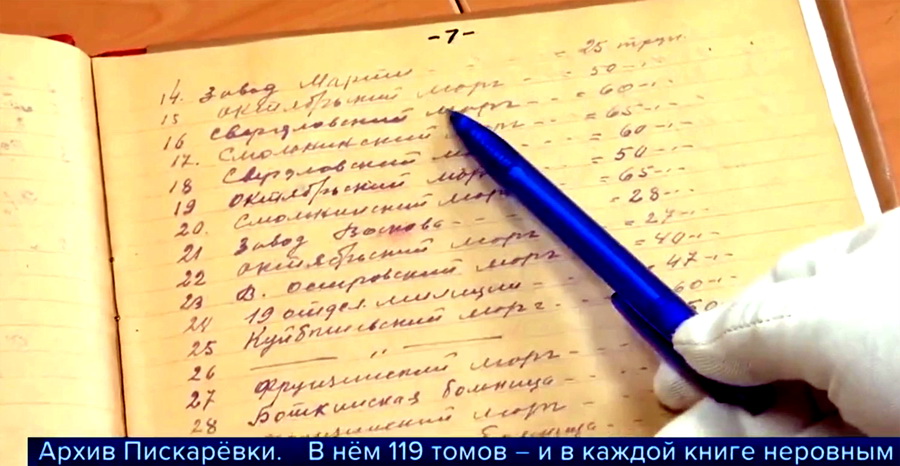 -7-
14. Завод Марти - - = 25 труп.
15 октябрьский морг - - = 50 -"-
16 Свердловский морг - - = 60 -"-
17. Смольнинский морг - - = 65 -"-
18 Свердловский = 60 -"-
19 октябрьский морг = 50 -"-
20. Смольнинский морг = 65 -"-
21 Завод Воскова - - - = 28 -"-
22 октябрьский морг = 27 -"-
23 В. островский морг = 40 -"-
24 19 отдел. милиции - - = 47 -"-
25 Куйбышевский морг - - 60 -"-
26 — " — 50
27 Фрунзенский морг -
28 Боткинская больница - -
морг -
больница -
Архив Пискарёвки. В нём 119 томов – и в каждой книге неровным